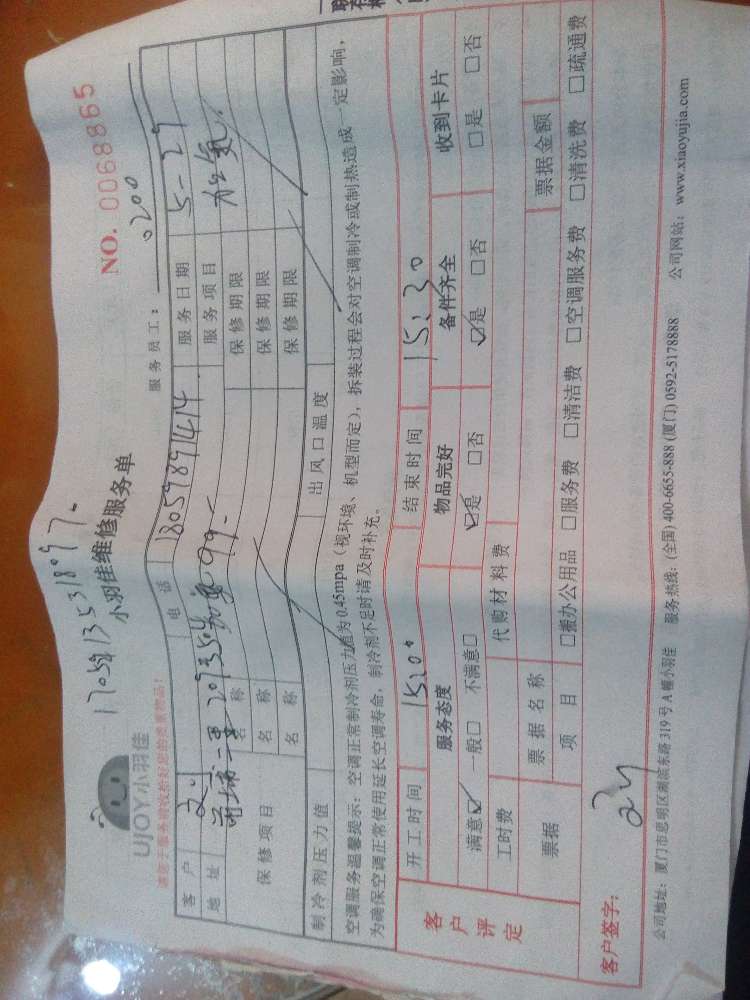 NO. 0068865
UJOY小羽佳
小羽佳维修服务单
服务员工: 0200
客户 电话 18059891414 服务日期 5-29
地址 服务项目
保修项目 名称 保修期限
名称 保修期限
名称 保修期限
制冷剂压力值 出风口温度
空调服务温馨提示:空调正常制冷剂压力值为0.45mpa(视环境、机型而定),拆装过程会对空调制冷或制热造成一定影响,
为确保空调正常使用延长空调寿命,制冷剂不足时请及时补充。
客户评定
开工时间 15:00 结束时间 15:30
服务态度 物品完好 备件齐全 收到卡片
满意☑ 一般□ 不满意□ ☑是 □否 ☑是 □否 □是 □否
工时费 代购材料费
票据 票据名称 票据金额
项目 □搬办公用品 □服务费 □清洁费 □空调服务费 □清洗费 □疏通费
客户签字:
公司地址:厦门市思明区湖滨东路319号A幢小羽佳 服务热线:(全国) 400-6655-888 (厦门) 0592-5178888 公司网站:www.xiaoyujia.com